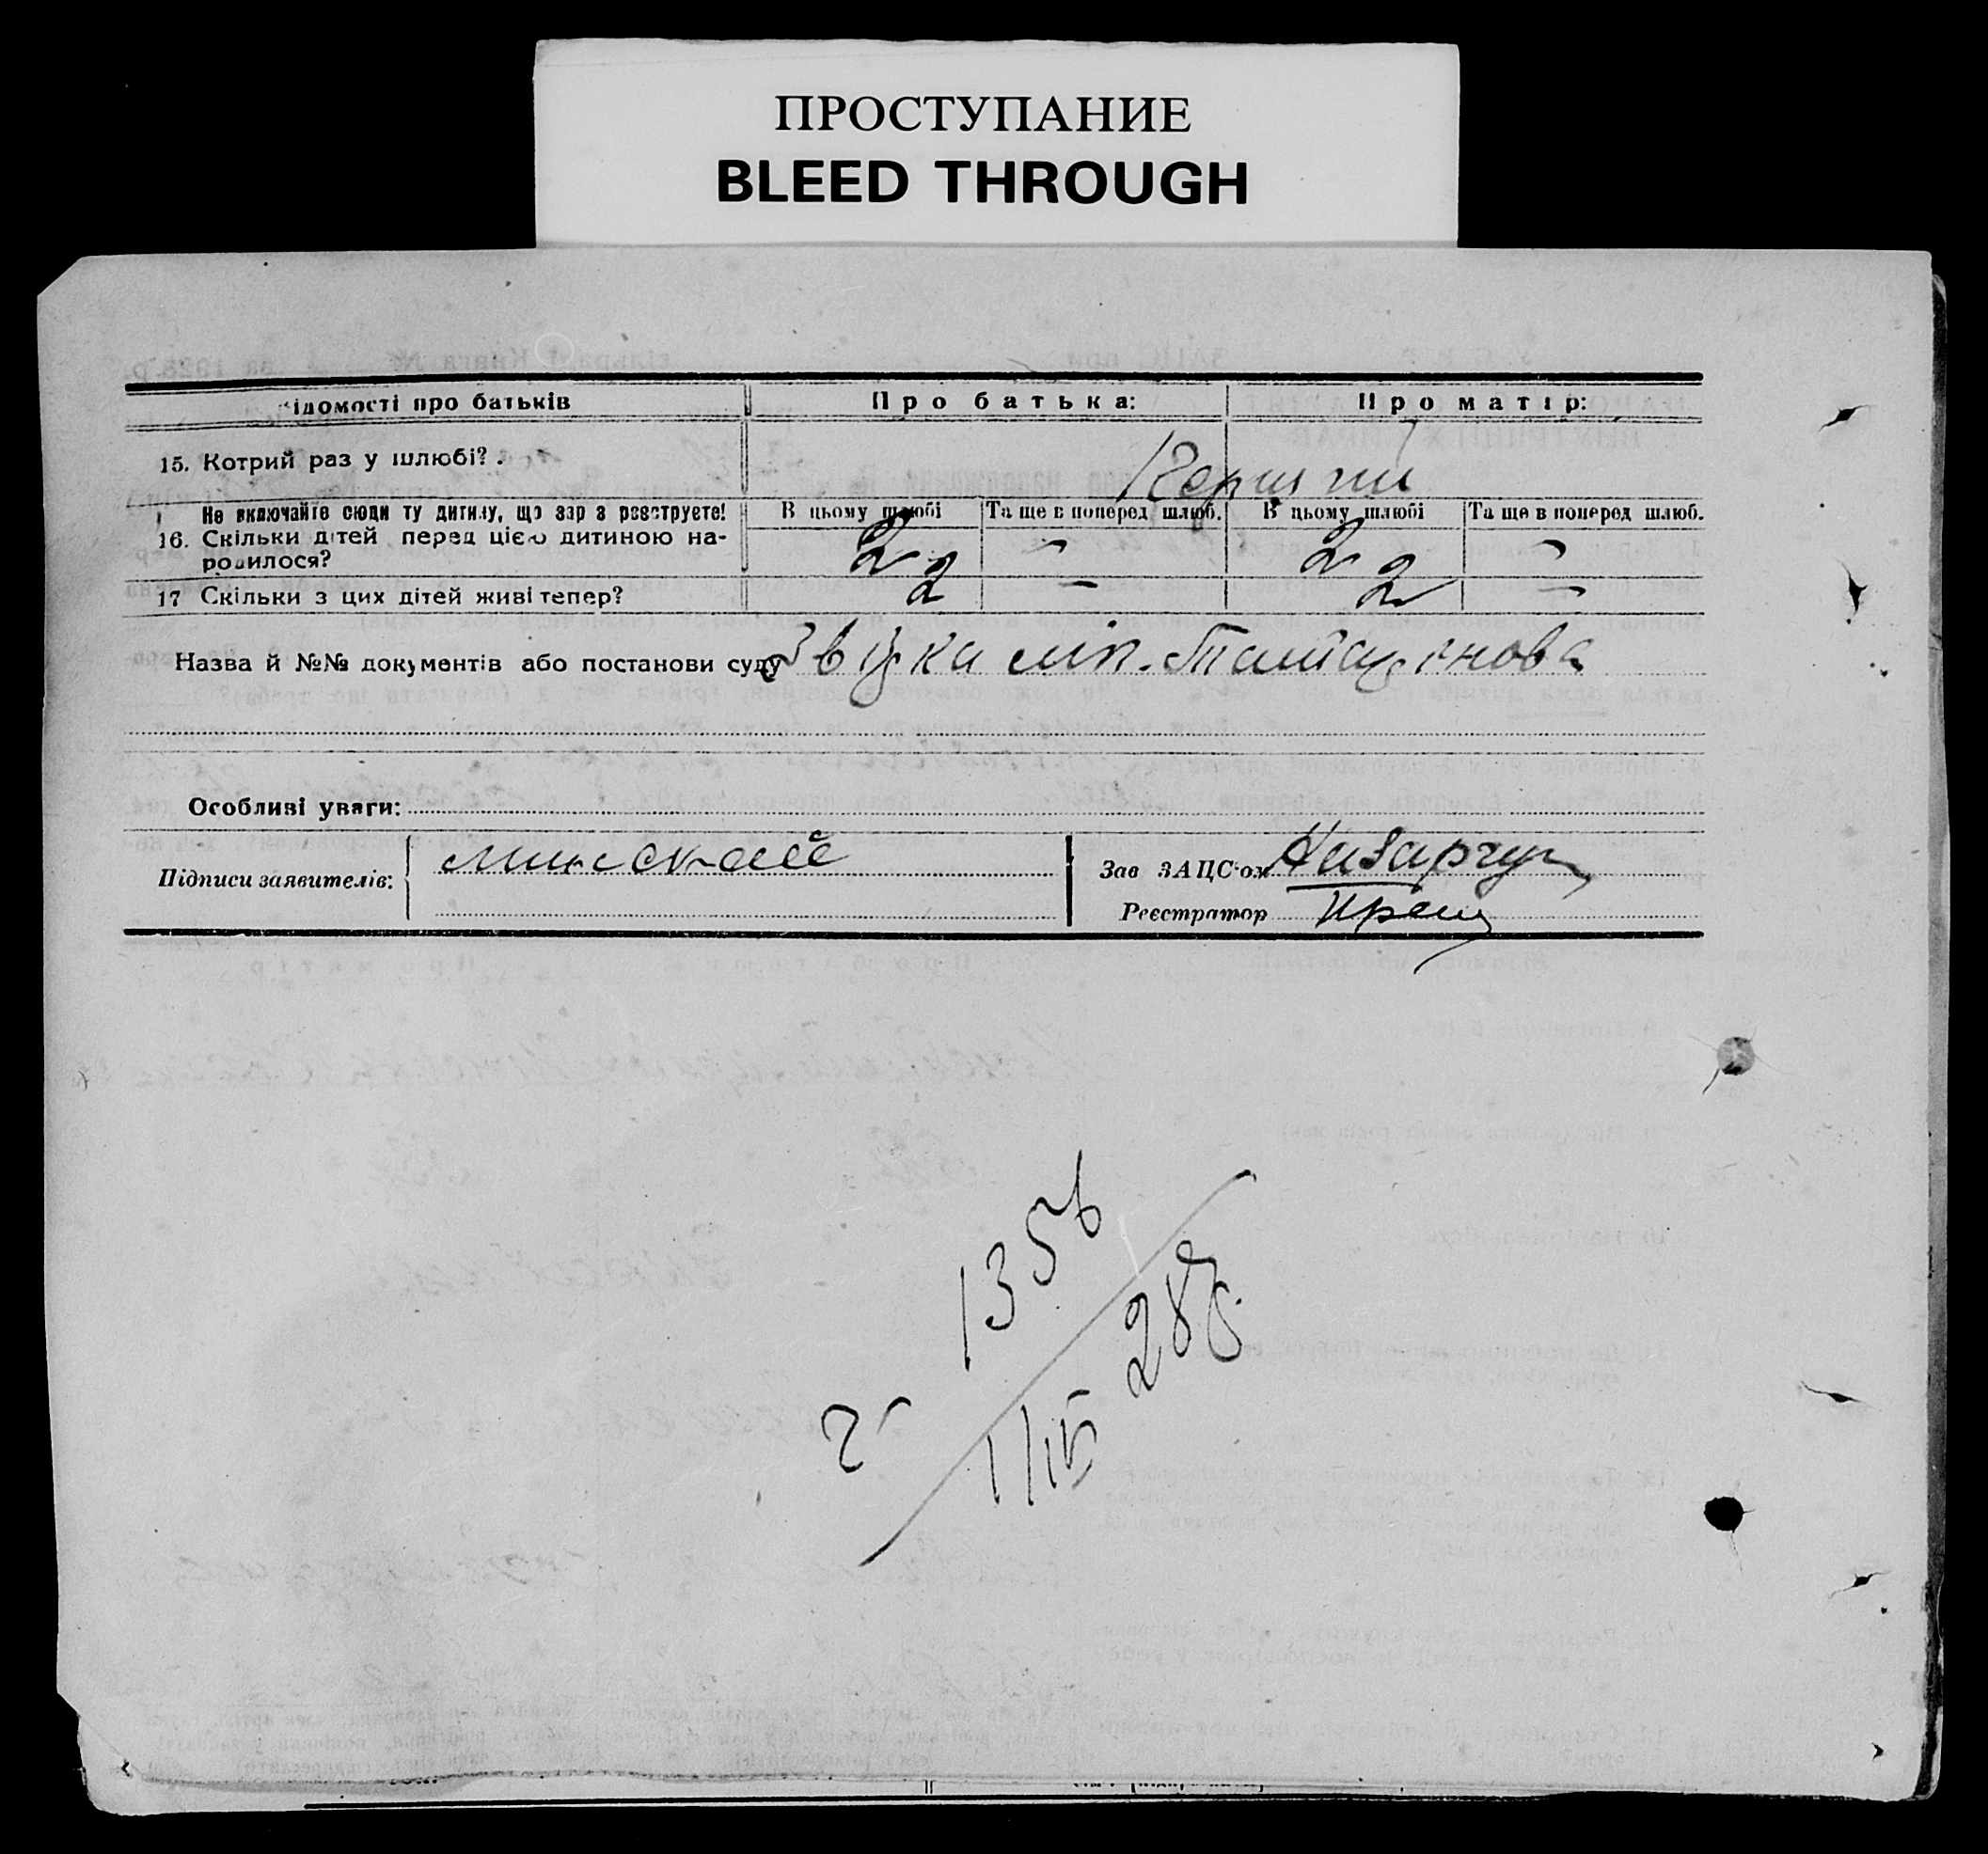 ПРОСТУПАНИЕ
BLEED THROUGH
ідомості про батьків
Про батька:
Про матір:
15. Котрий раз у шлюбі?
Не включайте сюди ту дитину, що зар з реєструєте!
В цьому шлюбі
Та ще в поперед шлюб.
В цьому шлюбі
Та ще в поперед шлюб.
16. Скільки дітей перед цією дитиною на-
родилося?
2 – 2 –
17 Скільки з цих дітей живі тепер?
2 – 2 –
Назва й №№ документів або постанови суду
Особливі уваги:
Підписи заявителів:
Зав ЗАЦС-ом Назарчук
Реєстратор
1356
2
1/IV 28